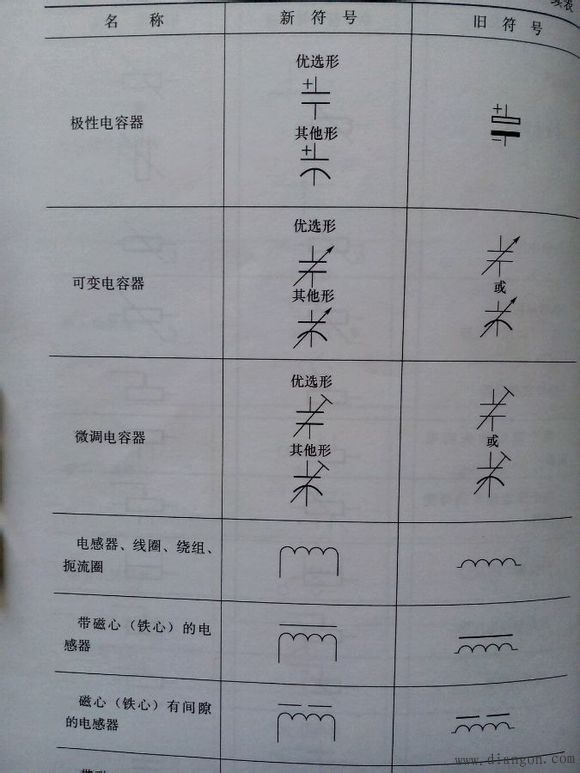 续表
名 称 新 符 号 旧 符 号
极性电容器
优选形
+
其他形
+
+
−
可变电容器
优选形
其他形
或
微调电容器
优选形
其他形
或
电感器、线圈、绕组、
扼流圈
带磁心（铁心）的电
感器
磁心（铁心）有间隙
的电感器
www.diangon.com